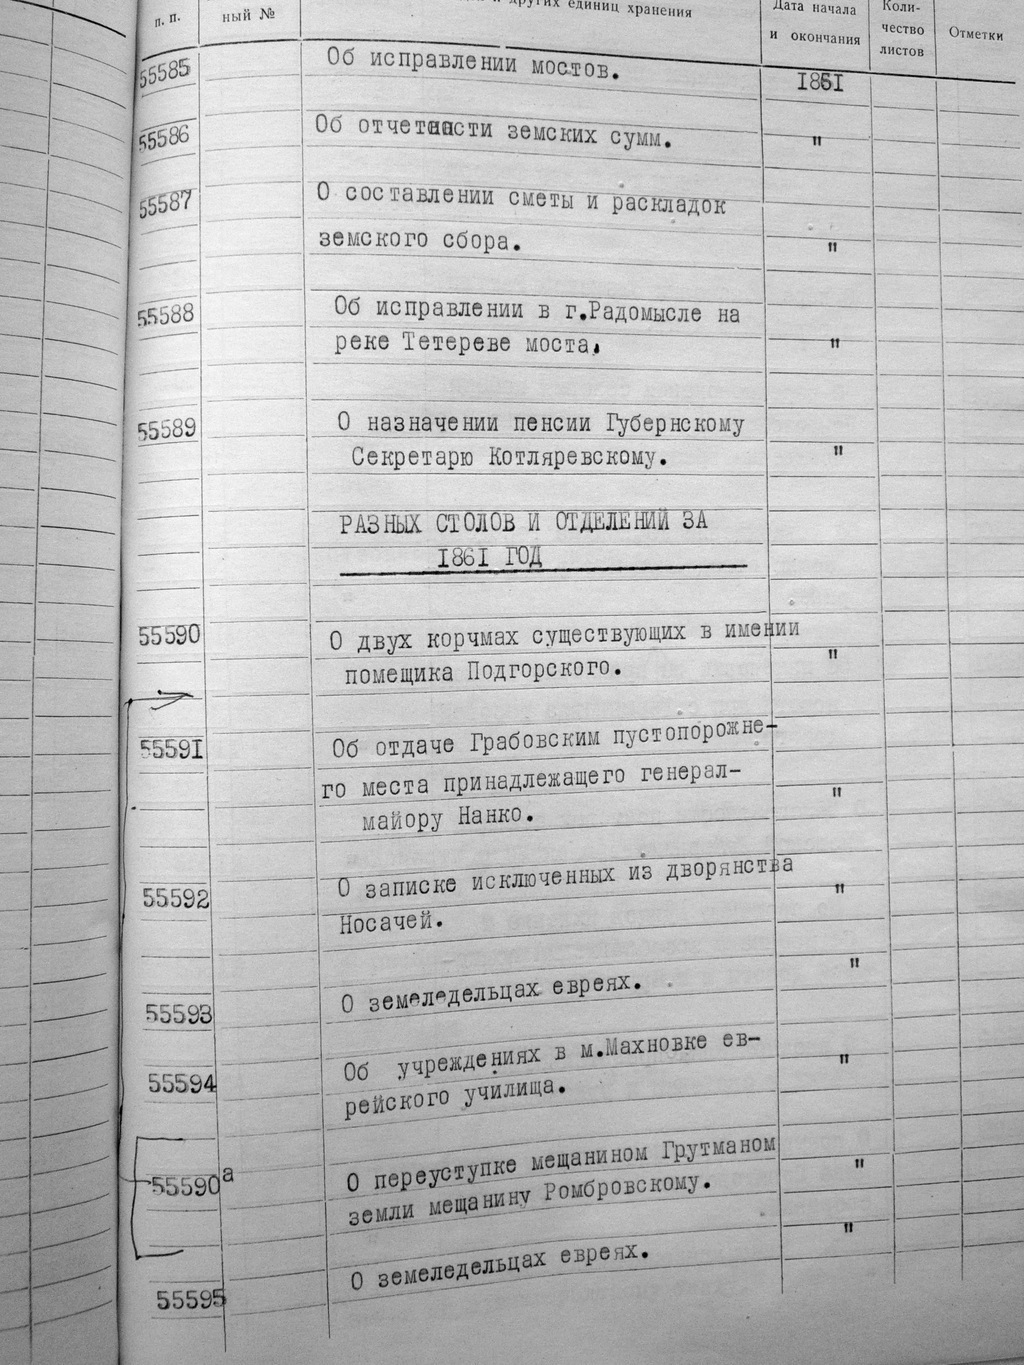 п. п.
ный №
других единиц хранения
Дата начала
и окончания
Коли-
чество
листов
Отметки
55585 Об исправлении мостов. 1861
55586 Об отчетности земских сумм. "
55587 О составлении сметы и раскладок
земского сбора. "
55588 Об исправлении в г.Радомысле на
реке Тетереве моста. "
55589 О назначении пенсии Губернскому
Секретарю Котляревскому. "
РАЗНЫХ СТОЛОВ И ОТДЕЛЕНИЙ ЗА
1861 ГОД
55590 О двух корчмах существующих в имении
помещика Подгорского. "
55591 Об отдаче Грабовским пустопорожне-
го места принадлежащего генерал- "
майору Нанко.
55592 О записке исключенных из дворянства "
Носачей.
55593 О земеледельцах евреях. "
55594 Об учреждениях в м.Махновке ев- "
рейского училища.
55590а О переуступке мещанином Грутманом "
земли мещанину Ромбровскому.
55595 О земеледельцах евреях. "